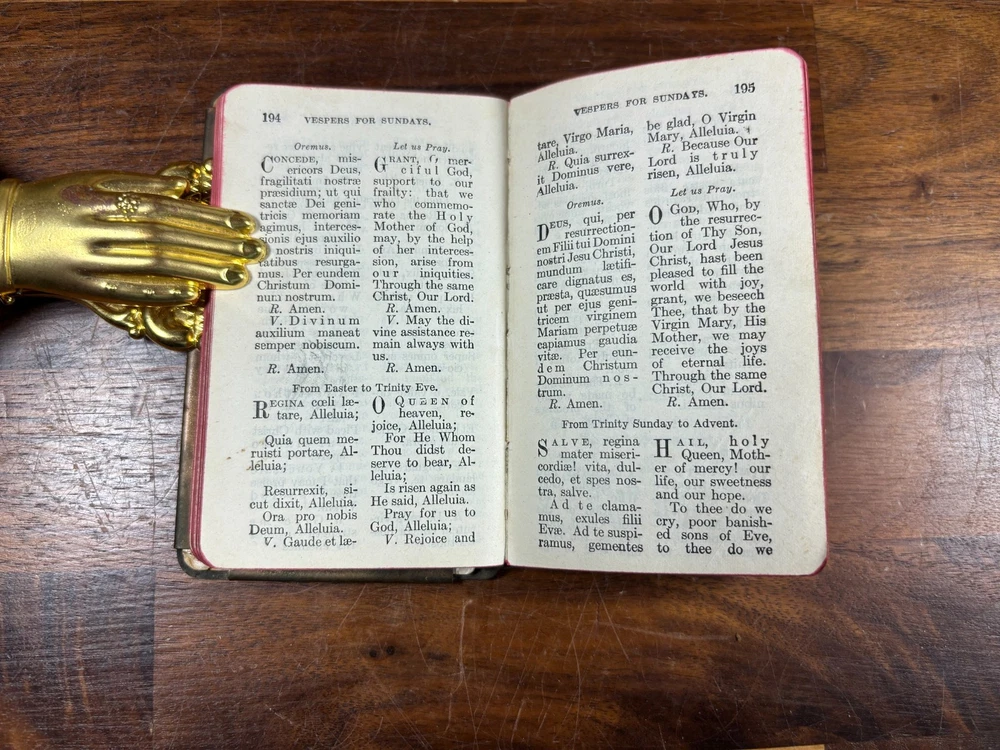 194 VESPERS FOR SUNDAYS.
Oremus.
CONCEDE, mis-
ericors Deus,
fragilitati nostræ
præsidium; ut qui
sanctæ Dei geni-
tricis memoriam
agimus, interces-
sionis ejus auxilio
nostris iniqui-
tatibus resurga-
mus. Per eundem
Christum Domi-
num nostrum.
R. Amen.
V. Divinum
auxilium maneat
semper nobiscum.
R. Amen.
Let us Pray.
GRANT, O mer-
ciful God,
support to our
frailty: that we
who commemo-
rate the Holy
Mother of God,
may, by the help
of her interces-
sion, arise from
our iniquities.
Through the same
Christ, Our Lord.
R. Amen.
V. May the di-
vine assistance re-
main always with
us.
R. Amen.
From Easter to Trinity Eve.
REGINA cœli læ-
tare, Alleluia;
Quia quem me-
ruisti portare, Al-
leluia;
Resurrexit, si-
cut dixit, Alleluia.
Ora pro nobis
Deum, Alleluia.
V. Gaude et læ-
O QUEEN of
heaven, re-
joice, Alleluia;
For He Whom
Thou didst de-
serve to bear, Al-
leluia;
Is risen again as
He said, Alleluia.
Pray for us to
God, Alleluia;
V. Rejoice and
VESPERS FOR SUNDAYS. 195
tare, Virgo Maria,
Alleluia.
R. Quia surrex-
it Dominus vere,
Alleluia.
Oremus.
DEUS, qui, per
resurrection-
em Filii tui Domini
nostri Jesu Christi,
mundum lætifi-
care dignatus es,
præsta, quæsumus
ut per ejus geni-
tricem virginem
Mariam perpetuæ
capiamus gaudia
vitæ. Per eun-
dem Christum
Dominum nos-
trum.
R. Amen.
be glad, O Virgin
Mary, Alleluia.
R. Because Our
Lord is truly
risen, Alleluia.
Let us Pray.
O GOD, Who, by
the resurrec-
tion of Thy Son,
Our Lord Jesus
Christ, hast been
pleased to fill the
world with joy,
grant, we beseech
Thee, that by the
Virgin Mary, His
Mother, we may
receive the joys
of eternal life.
Through the same
Christ, Our Lord.
R. Amen.
From Trinity Sunday to Advent.
SALVE, regina
mater miseri-
cordiæ! vita, dul-
cedo, et spes nos-
tra, salve.
Ad te clama-
mus, exules filii
Evæ. Ad te suspi-
ramus, gementes
HAIL, holy
Queen, Moth-
er of mercy! our
life, our sweetness
and our hope.
To thee do we
cry, poor banish-
ed sons of Eve,
to thee do we